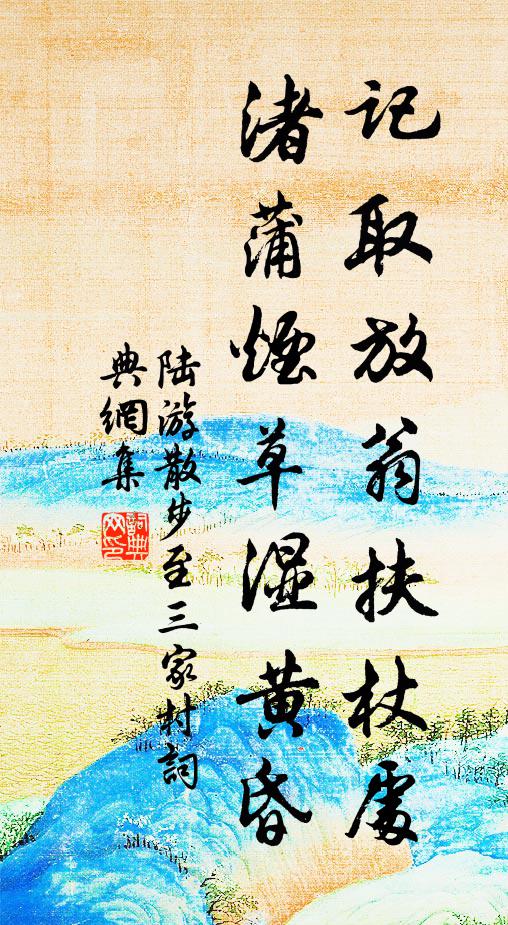 记取放翁扶杖處
渚蒲煙草湿黄昏
陆游散步至三家村詞
典網集
詞典网印